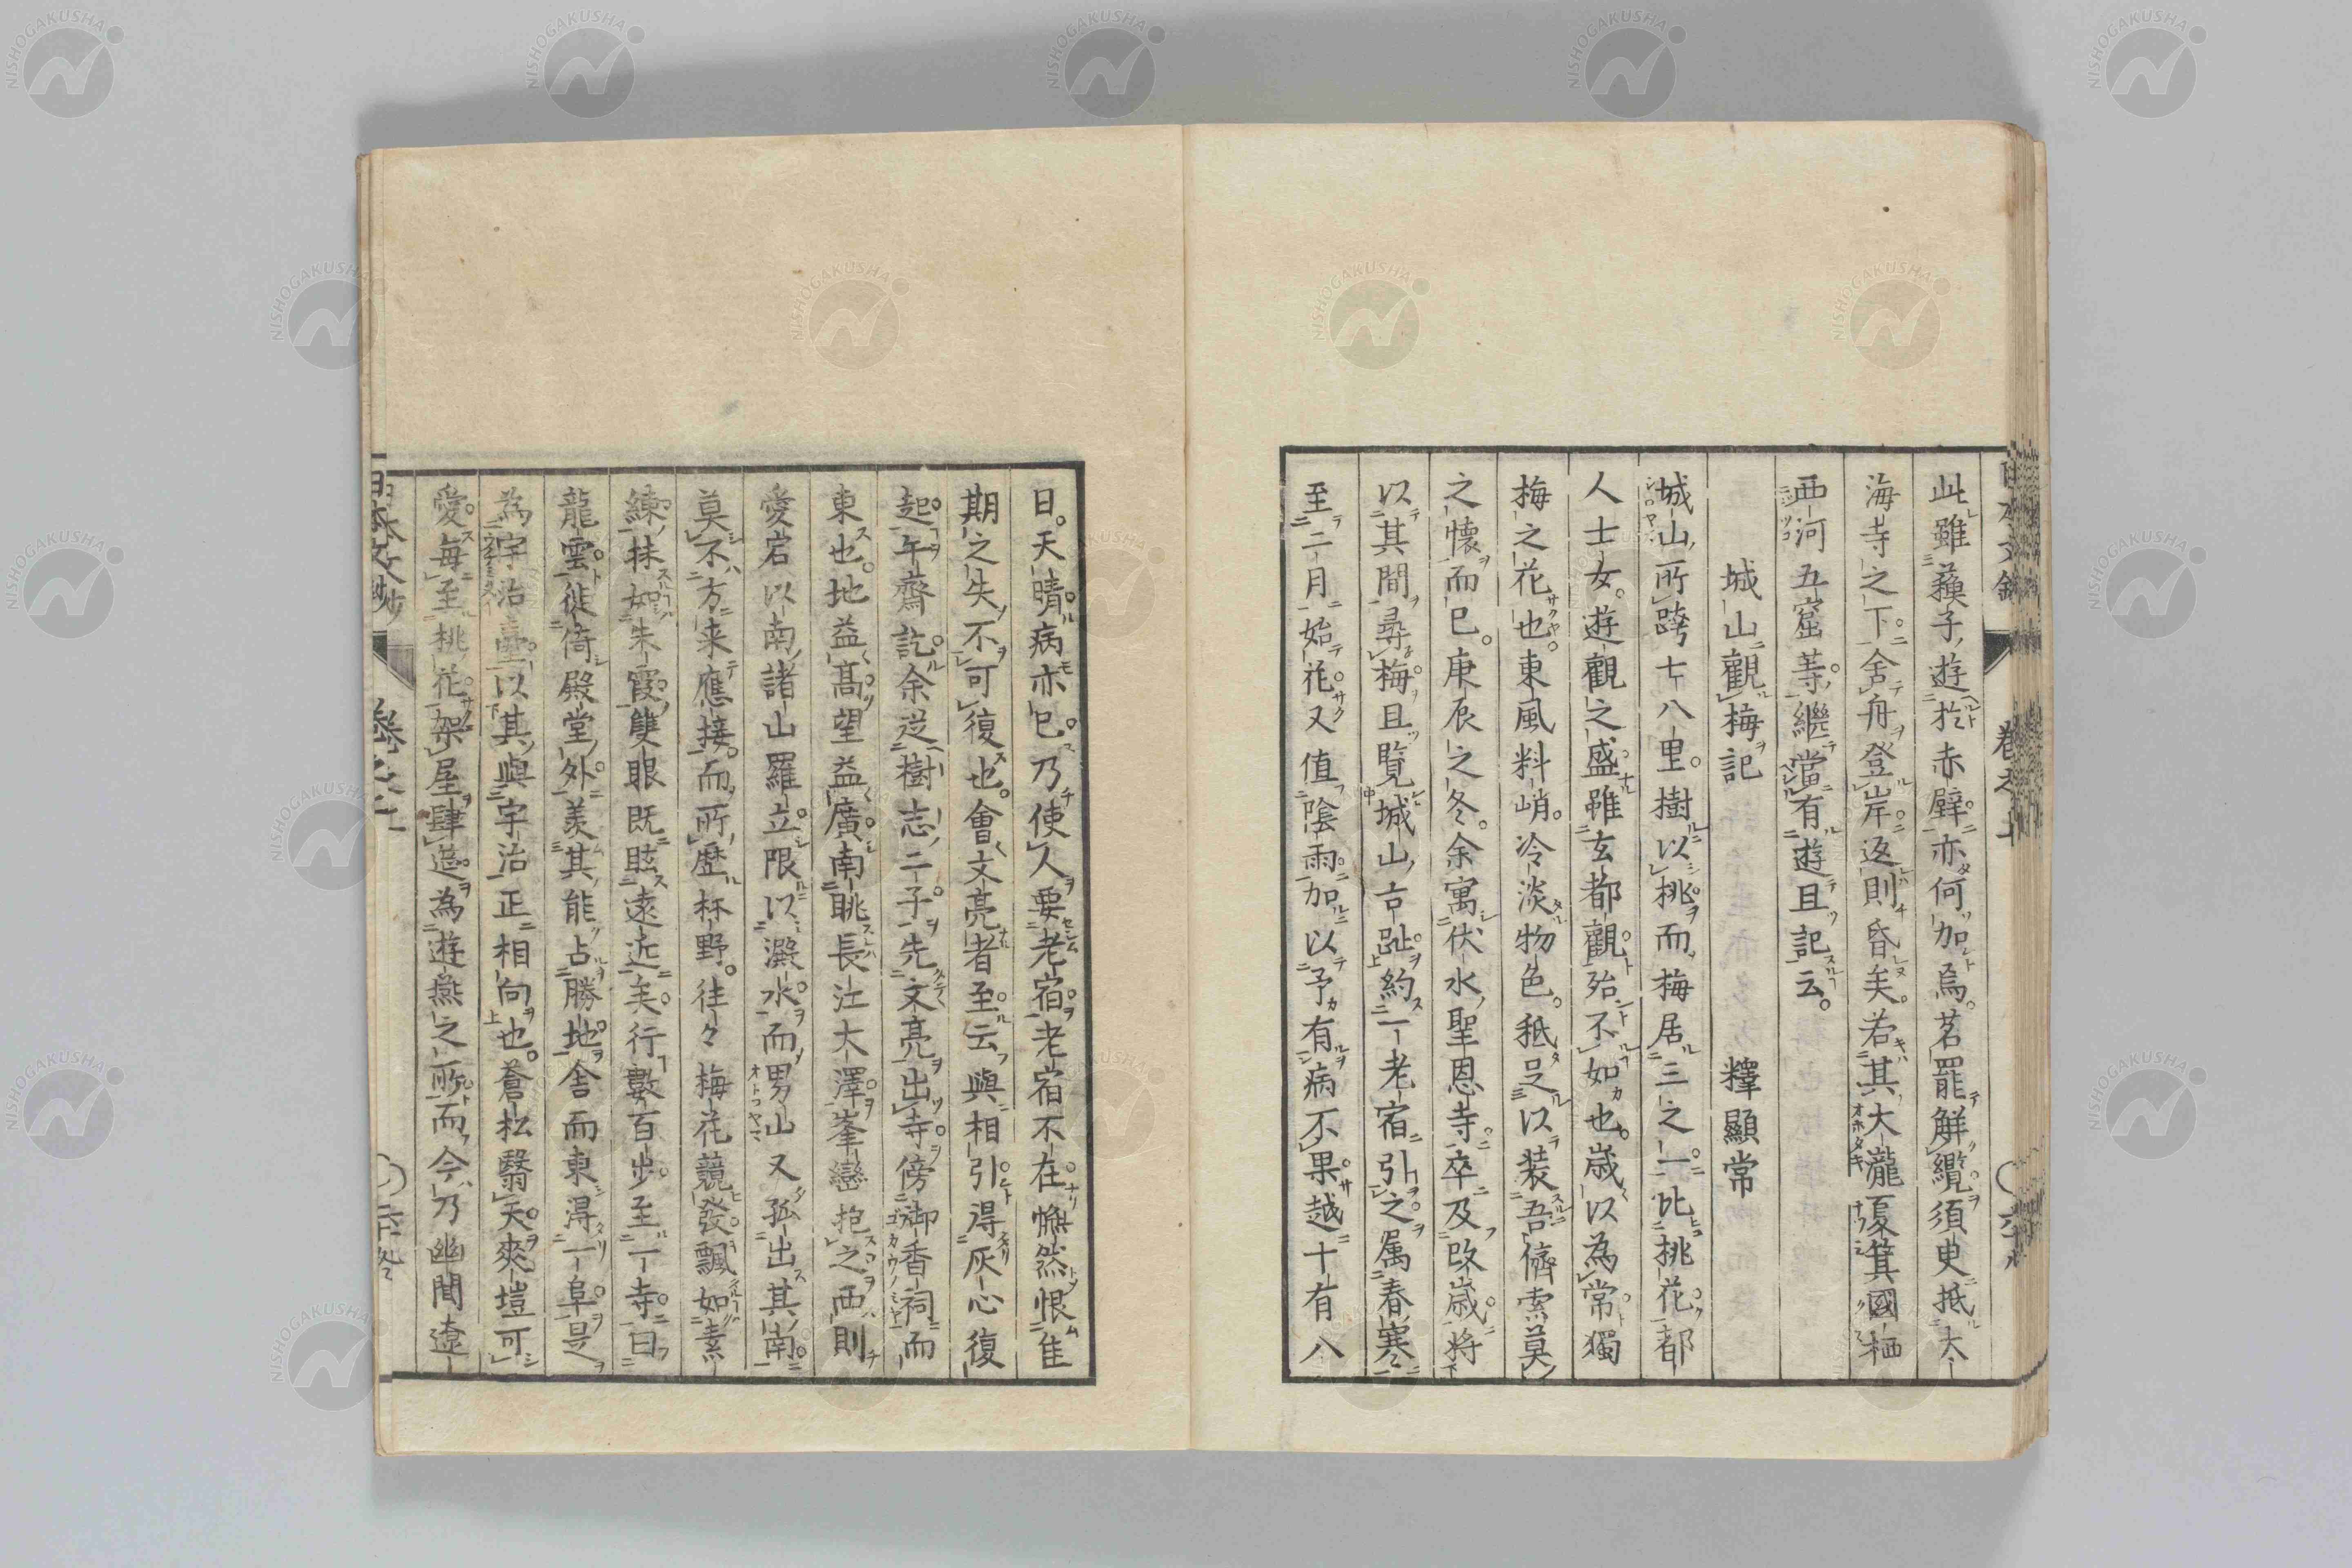 此雖蘓子遊於赤壁亦何加焉茗罷解纜須臾抵大
海寺之下舍舟登岸返則昏矣若其大瀧夏箕國栖
西河五窟等繼當有遊且記云
城山觀梅記　釋顯常
城山所跨七八里樹以桃而梅居三之一比桃花都
人士女遊觀之盛雖玄都觀殆不如也歳以為常獨
梅之花也東風料峭冷淡物色秖足以装吾儕索莫
之懐而已庚辰之冬余寓伏水聖恩寺卒及改歳将
以其間尋梅且覧城山古趾約一老宿引之属春寒
至二月始花又值陰雨加以予有病不果越十有八
日天晴病亦已乃使人要老宿老宿不在憮然恨佳
期之失不可復也會文亮者至云與相引得灰心復
起午齋訖余逆樹志二子先文亮出寺傍御香祠而
東也地益髙望益廣南眺長江大澤峯巒抱之西則
愛宕以南諸山羅立限以澱水而男山又孤出其南
莫不方来應接而所歴林野往々梅花競發飄如素
練抹如朱霞雙眼既眩遠近矣行數百歩至一寺曰
龍雲徙倚殿堂外羨其能占勝地舍而東得一阜是
為宇治臺以其與宇治正相向也蒼松翳天爽塏可
愛毎至桃花架屋肆筵為遊燕之所而今乃幽閴遼